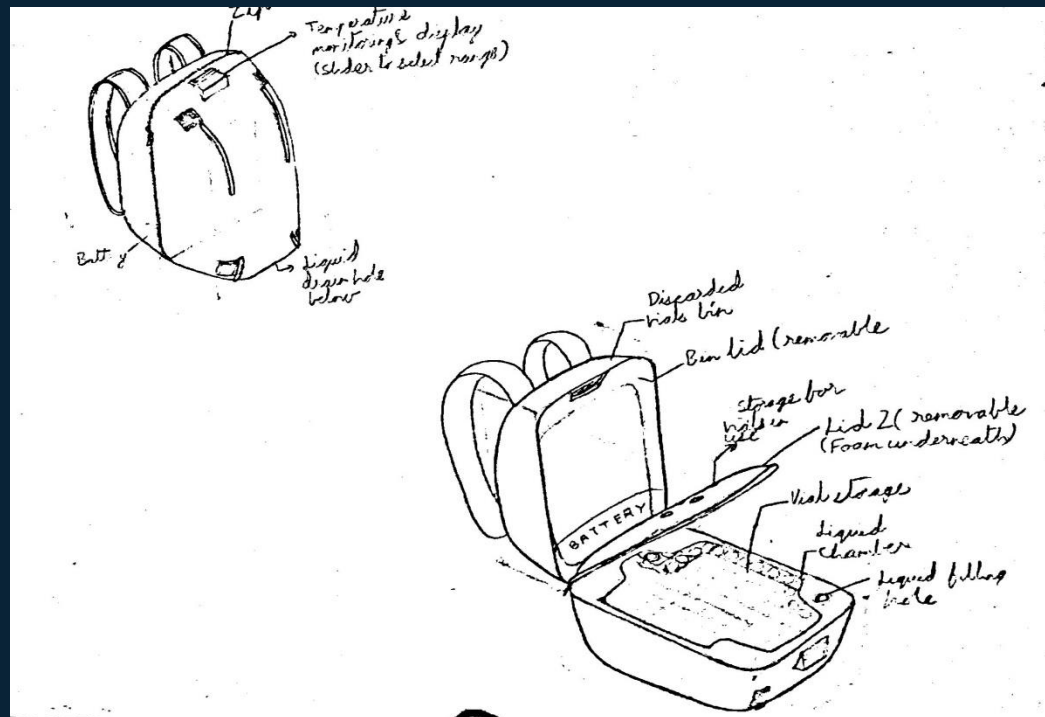 Temperature
monitoring & display
(slider to select range)
Liquid
drain hole
below
Discarded
vials bin
Bin lid (removable
storage for
vials in
use
Lid 2 ( removable
(Foam underneath)
BATTERY
Vial storage
Liquid
Chamber
Liquid filling
hole